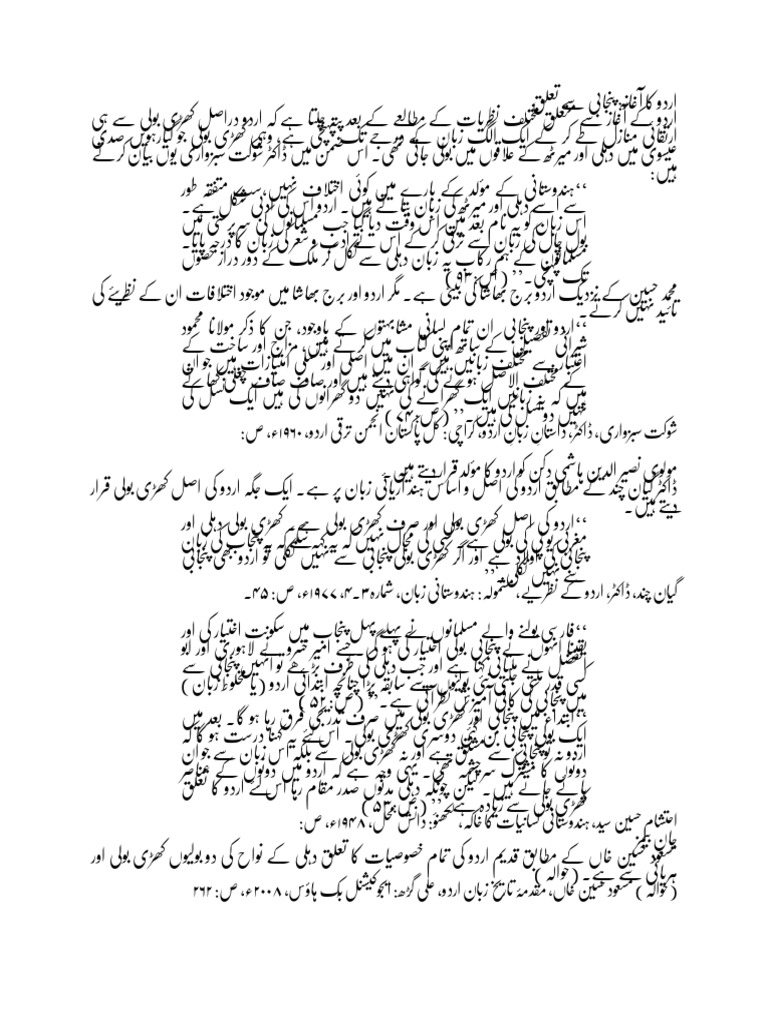 اردو کا آغاز: پنجابی سے تعلق
اردو کے آغاز سے متعلق مختلف نظریات کے مطالعے کے بعد پتہ چلتا ہے کہ اردو دراصل کھڑی بولی سے ہی
ارتقائی منازل طے کر کے ایک الگ زبان کے درجے تک پہنچی ہے۔ وہی کھڑی بولی جو گیارہویں صدی
عیسوی میں دہلی اور میرٹھ کے علاقوں میں بولی جاتی تھی۔ اس ضمن میں ڈاکٹر شوکت سبزواری یوں بیان کرتے
ہیں:
‘‘ہندوستانی کے مؤلد کے بارے میں کوئی اختلاف نہیں، سب متفقہ طور
سے اسے دہلی اور میرٹھ کی زبان بتاتے ہیں۔ اردو اس کی ادبی شکل ہے۔
اس زبان کو یہ نام بعد میں اس وقت دیا گیا جب مسلمانوں کی سرپرستی میں
بول چال کی زبان سے ترقی کر کے اس نے ادب و شعر کی زبان کا درجہ پایا۔
مسلمانوں کے ہم رکاب یہ زبان دہلی سے نکل کر ملک کے دور دراز حصوں
تک پہنچی۔’’ (ص:۹۳)
محمد حسین کے نزدیک اردو برج بھاشا کی بیٹی ہے۔ مگر اردو اور برج بھاشا میں موجود اختلافات ان کے نظریئے کی
تائید نہیں کرتے۔
‘‘اردو اور پنجابی ان تمام لسانی مشابہتوں کے باوجود، جن کا ذکر مولانا محمود
شیرانی تفصیل کے ساتھ اپنی کتاب میں کرتے ہیں، مزاج اور ساخت کے
اعتبار سے مختلف زبانیں ہیں۔ ان میں اصلی اور نسلی امتیازات ہیں جو ان
کے مختلف الاصل ہونے کی گواہی دیتے ہیں اور صاف صاف چغلی کھاتے
ہیں کہ یہ زبانیں ایک گھرانے کی نہیں دو گھرانوں کی ہیں ایک نسل کی
نہیں دو نسل کی ہیں۔’’ (ص:۷۴)
شوکت سبزواری، ڈاکٹر، داستان زبان اردو، کراچی: کل پاکستان انجمن ترقی اردو، ۱۹۶۰ء، ص:
مولوی نصیر الدین ہاشمی دکن کو اردو کا مؤلد قرار دیتے ہیں۔
ڈاکٹر گیان چند کے مطابق اردو کی اصل و اساس ہند آریائی زبان پر ہے۔ ایک جگہ اردو کی اصل کھڑی بولی قرار
دیتے ہیں۔
‘‘اردو کی اصل کھڑی بولی اور صرف کھڑی بولی ہے۔ کھڑی بولی دہلی اور
مغربی یوپی کی بولی ہے۔ کسی کی مجال نہیں کہ یہ کہہ سکے کہ یہ پنجاب کی زبان
پنجابی کی اولاد ہے اور اگر کھڑی بولی پنجابی سے نہیں نکلی تو اردو بھی پنجابی
سے نہیں نکلی’’
گیان چند، ڈاکٹر، اردو کے نظریے، مشمولہ: ہندوستانی زبان، شمارہ ۳۔۴، ۱۹۷۷ء، ص: ۴۵۔
‘‘فارسی بولنے والے مسلمانوں نے پہلے پہل پنجاب میں سکونت اختیار کی اور
یقیناً انہوں نے پنجابی بولی اختیار کی ہو گی جسے امیر خسرو نے لاہوری اور ابو
الفضل نے ملتانی کہا ہے اور جب دہلی کی طرف بڑھے تو انہیں پنجابی سے
کسی قدر ملتی جلتی نئی بولیوں سے سابقہ پڑا چنانچہ ابتدائی اردو (یا مخلوط زبان)
میں پنجابی کی کافی آمیزش نظر آتی ہے۔’’ (ص:۵۲)
‘‘ابتداء میں پنجابی اور کھڑی بولی میں صرف تدریجی فرق رہا ہو گا۔ بعد میں
ایک بولی پنجابی بن گئی دوسری کھڑی بولی۔ اس لئے یہ کہنا درست ہو گا کہ
اردو نہ تو پنجابی سے مشتق ہے اور نہ کھڑی بولی سے بلکہ اس زبان سے جو ان
دونوں کا مشترک سرچشمہ تھی۔ یہی وجہ ہے کہ اردو میں دونوں کے عناصر
پائے جاتے ہیں۔ لیکن چونکہ دہلی مدتوں صدر مقام رہا اس لئے اردو کا تعلق
کھڑی بولی سے زیادہ ہے۔’’ (ص:۵۳)
احتشام حسین سید، ہندوستانی لسانیات کا خاکہ، لکھنؤ: دانش محل، ۱۹۴۸ء، ص:
جان بیمز
مسعود حسین خاں کے مطابق قدیم اردو کی تمام خصوصیات کا تعلق دہلی کے نواح کی دو بولیوں کھڑی بولی اور
ہریانی سے ہے۔ (حوالہ)
(حوالہ) مسعود حسین خاں، مقدمۂ تاریخ زبان اردو، علی گڑھ: ایجوکیشنل بک ہاؤس، ۲۰۰۸ء، ص: ۲۶۲